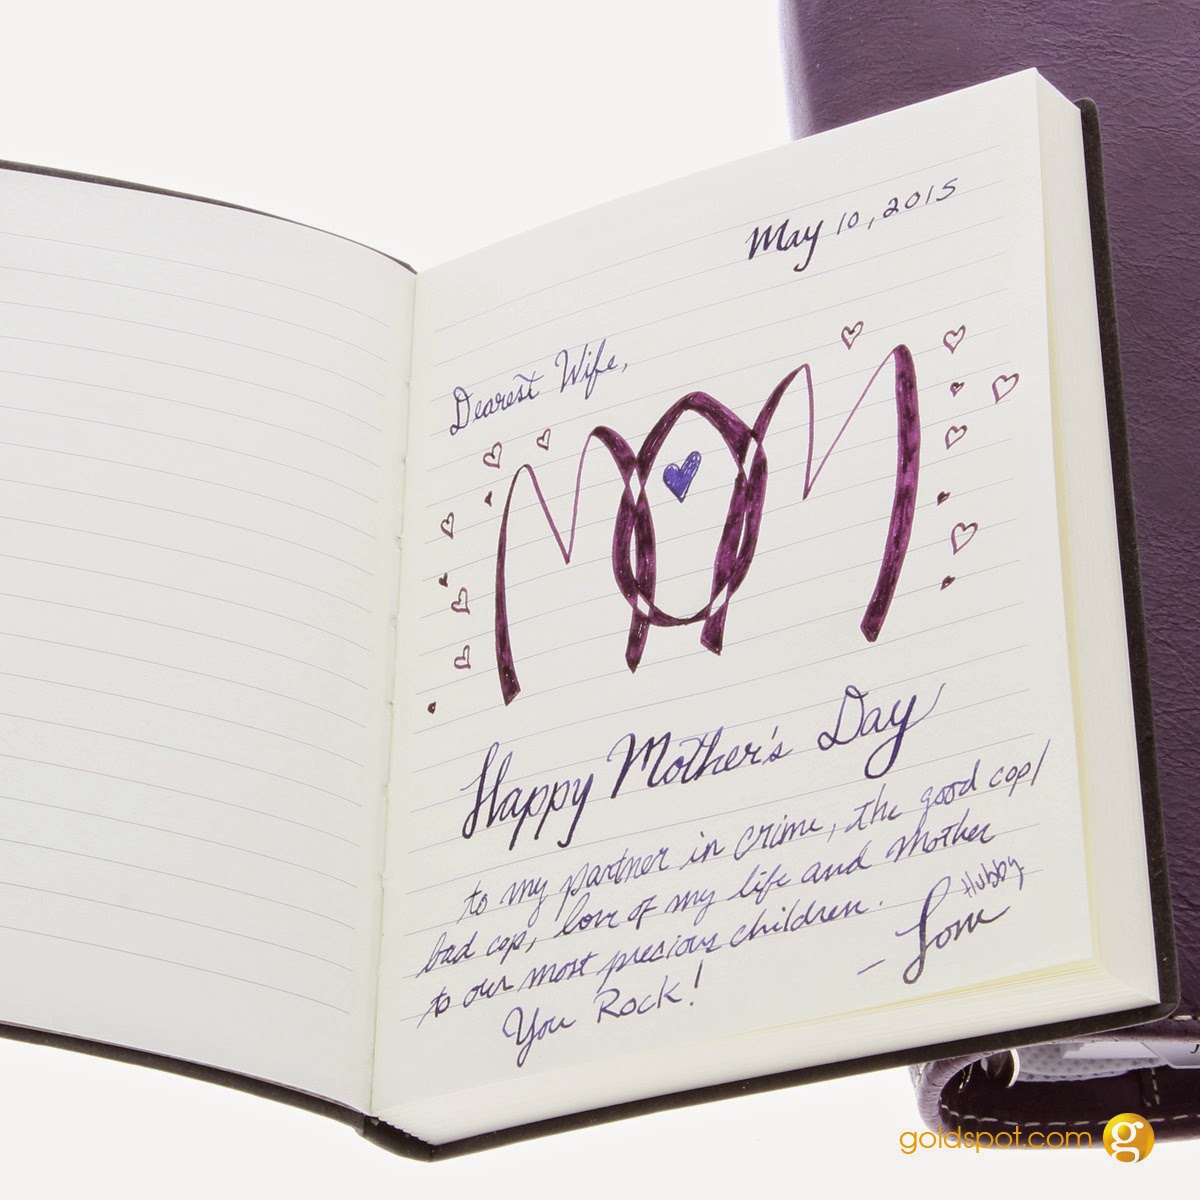 May 10, 2015
Dearest Wife,
MOM
Happy Mother's Day
to my partner in crime, the good cop/
bad cop, love of my life and Mother
to our most precious children.
Hubby
You Rock!
goldspot.com g